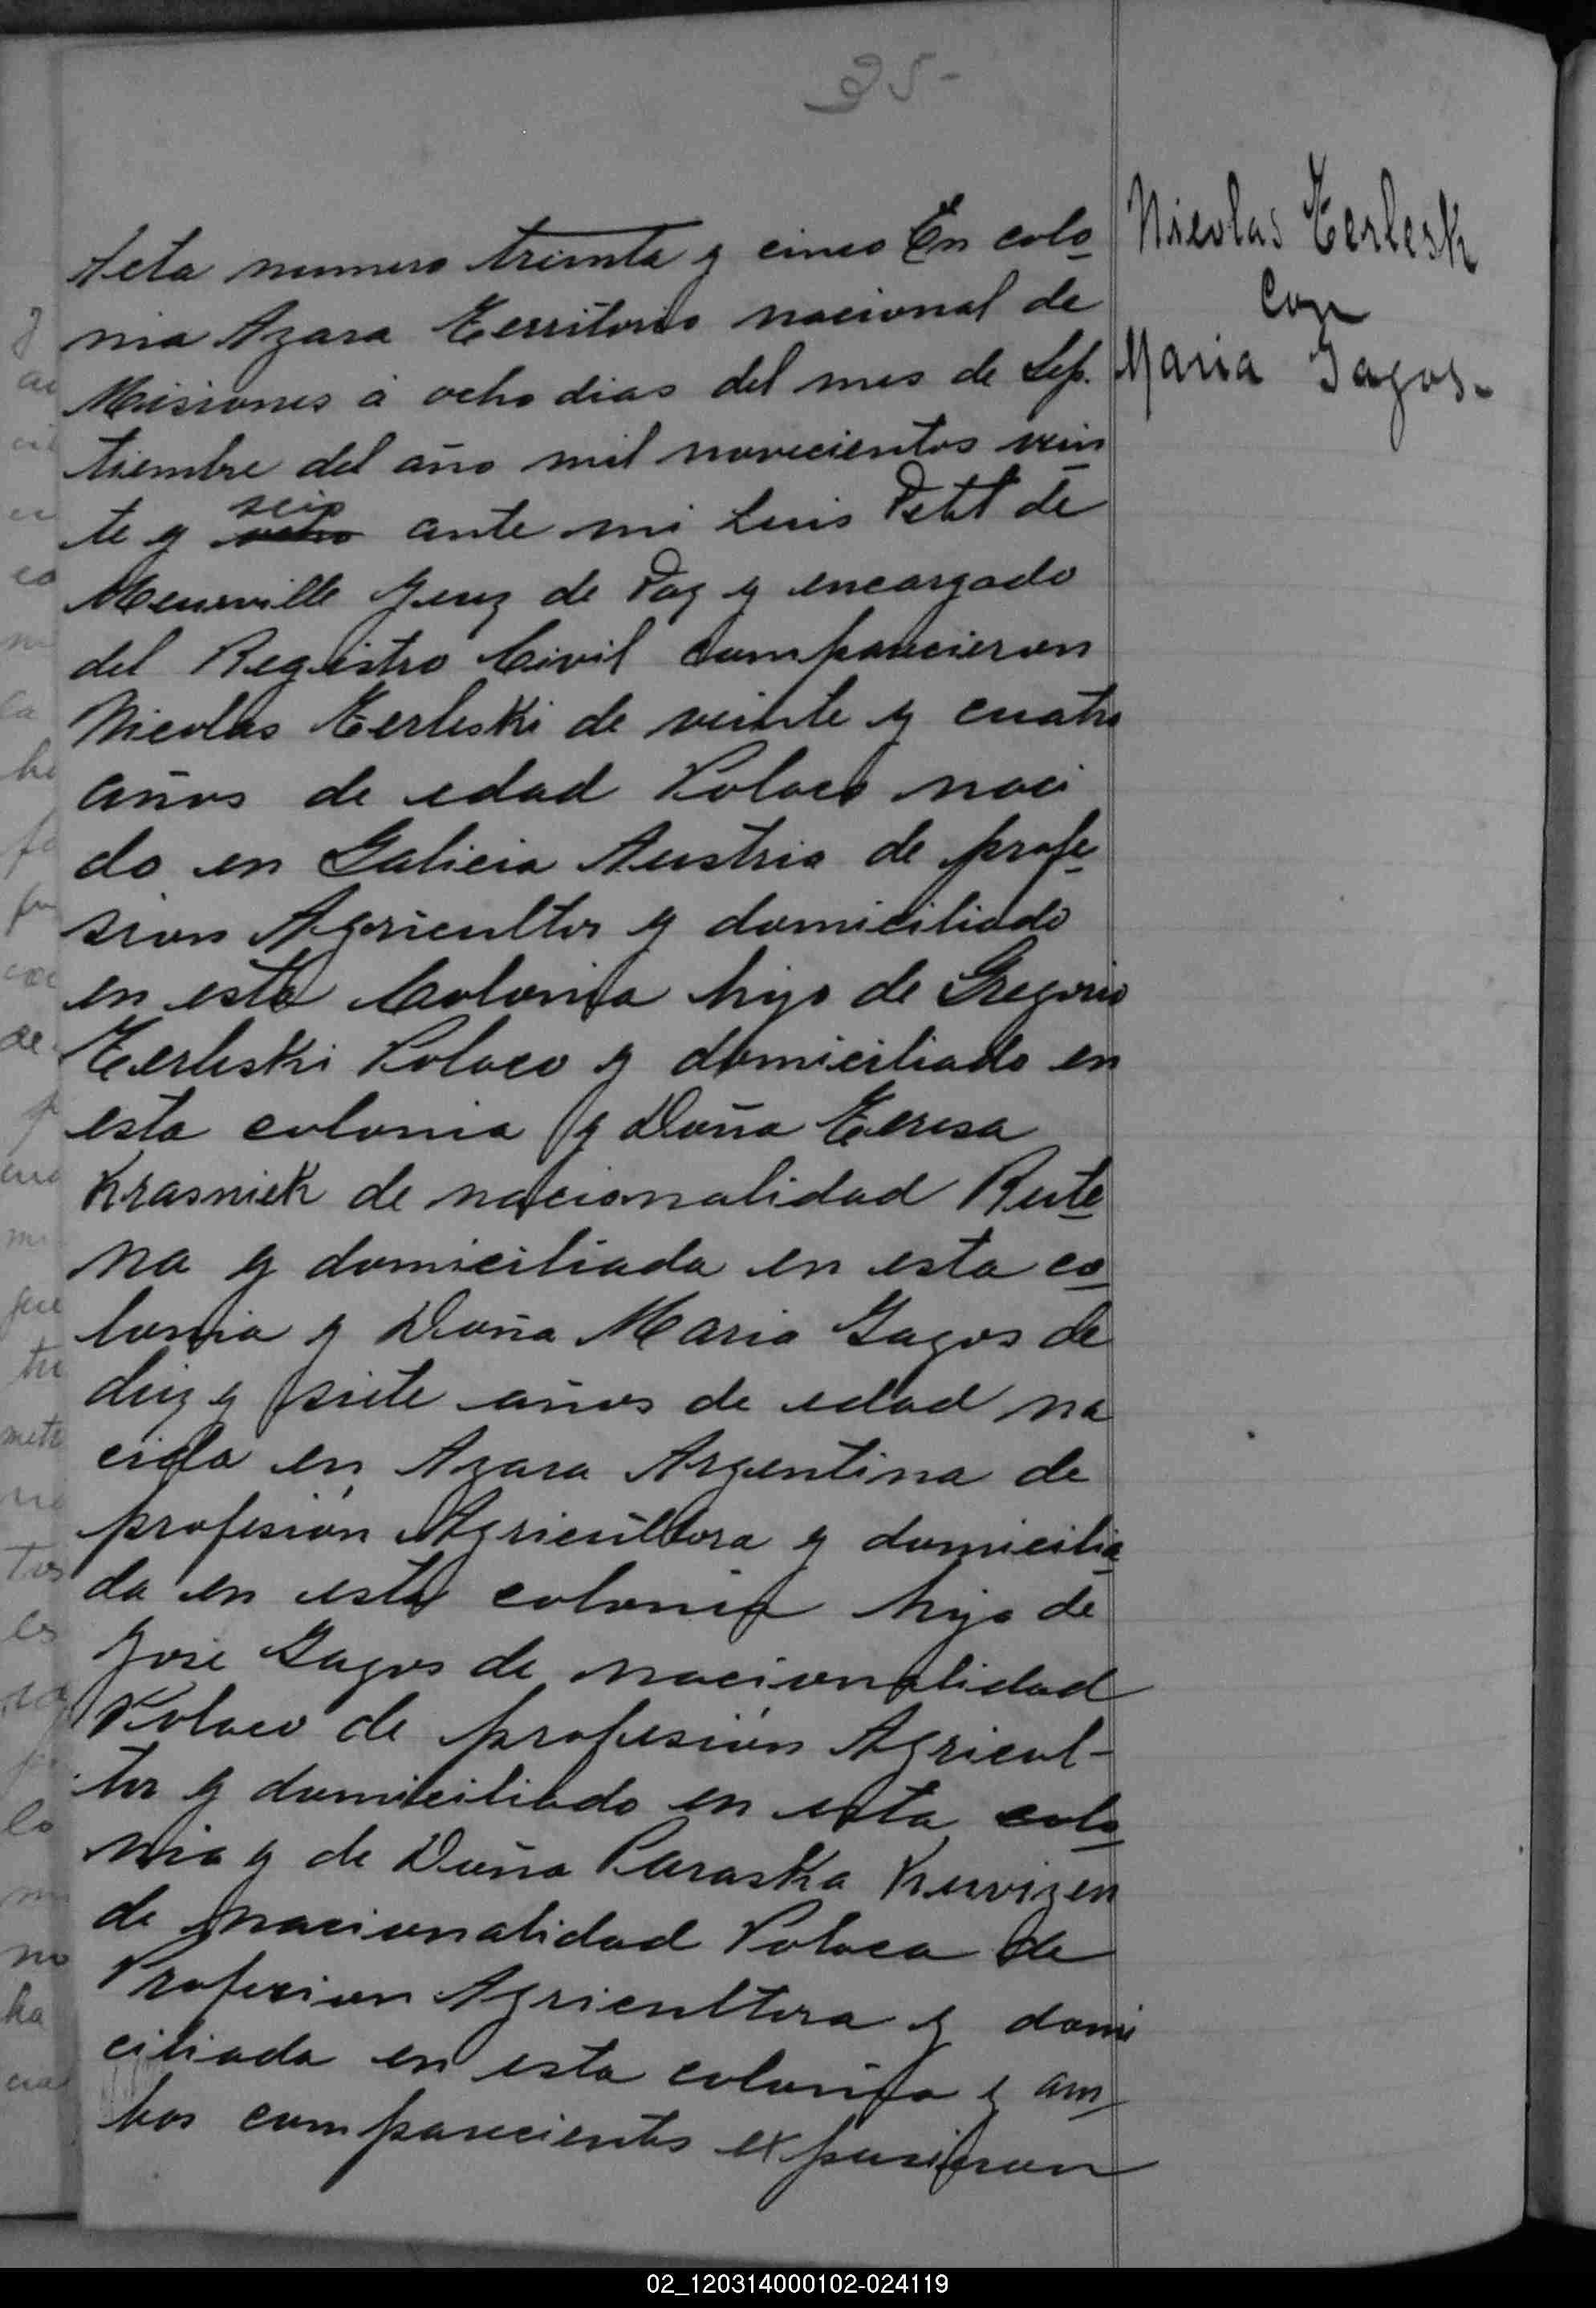 35-
Nicolas Terlesk
Con
Maria Gagos-
Acta numero treinta y cinco En colo
nia Azara Territorio nacional de
Misiones á ocho dias del mes de Sep.
tiembre del año mil novecientos vein
te y seis ocho ante mi Luis Petit de
Meurville Juez de Paz y encargado
del Registro Civil comparecieron
Nicolas Terleski de veinte y cuatro
años de edad Polaco naci
do en Galicia Austria de profe
sion Agricultor y domiciliado
en esta Colonia hijo de Gregorio
Terleski Polaco y domiciliado en
esta colonia y Doña Teresa
Krasniek de nacionalidad Rute
na y domiciliada en esta co
lonia y Doña Maria Gagos de
diez y siete años de edad na
cida en Azara Argentina de
profesión Agricultora y domicilia
da en esta colonia hija de
José Gagos de nacionalidad
Polaco de profesión Agricul-
tor y domiciliado en esta colo
nia y de Doña Paraska
de nacionalidad Polaca de
Profesion Agricultora y domi
ciliada en esta colonia y am
bos comparecientes expusieron
02_120314000102-024119